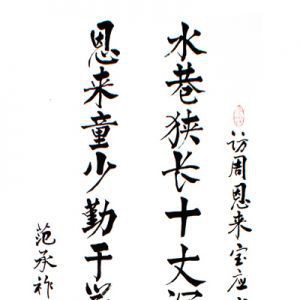 访周恩来宝应
水巷狭长十丈
恩来童少勤于
范承祚